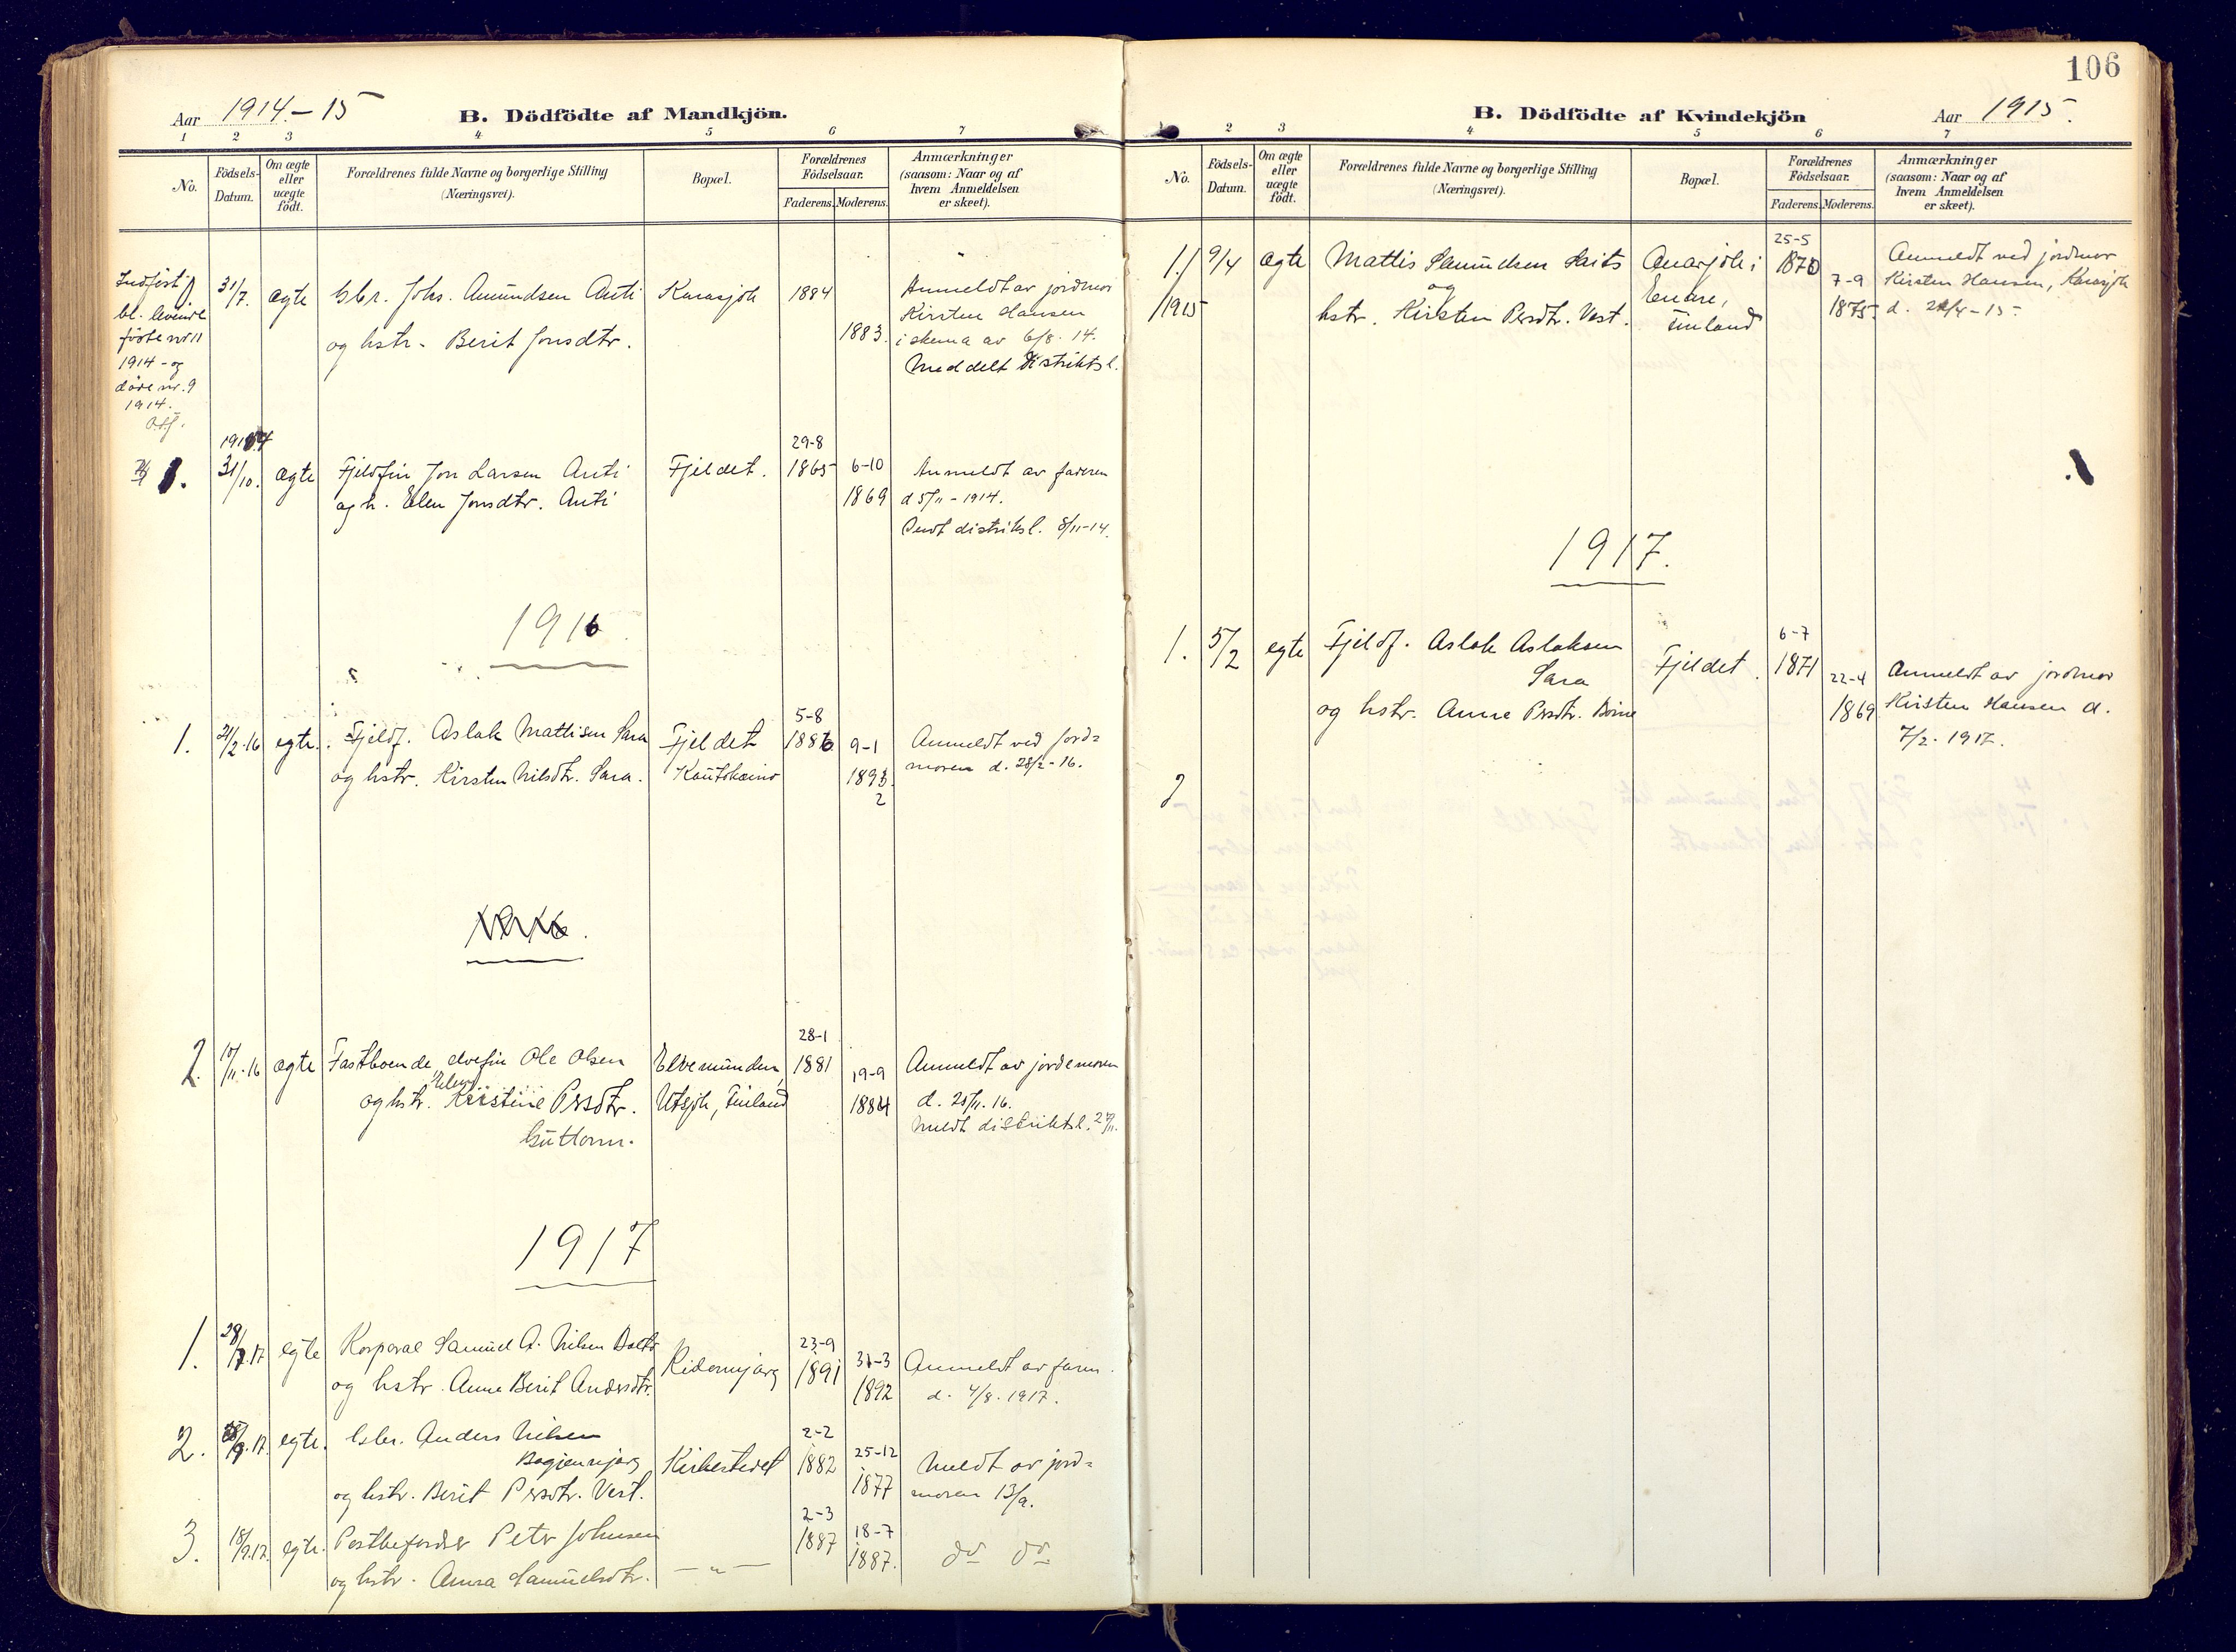 106
Aar 1914-15 B. Dödfödte af Mandkjön.
1 2 3 4 5 6 7
No. Födsels-Datum. Om ægte eller uægte födt. Forældrenes fulde Navne og borgerlige Stilling (Næringsvei). Bopæl. Forældrenes Födselsaar. Faderens. Moderens. Anmærkninger (saasom: Naar og af hvem Anmeldelsen er skeet).
Indført
bl. levende
fødte nr 11
1914 - og
døde nr. 9
1914.
31/7. ægte Gbr. Johs. Amundsen Anti Karasjok 1884 Anmeldt av jordmor
Kirsten Hansen
og hstr. Berit Jonsdtr. 1883. i skema av 6/8. 14.
Meddelt distriktsl.
29-8
1. 31/10. ægte Fjeldfin Jon Larsen Anti Fjeldet. 1865 6-10 Anmeldt av faderen
og h. Elen Jonsdtr. Anti 1869 d 5/11 - 1914.
Sendt distriktsl. 8/11-14.
1916
5-8
1. 21/2.16 egte. Fjeldf. Aslak Mattisen Sara Fjeldet 1886 9-1 Anmeldt ved jord=
og hstr. Kirsten Nilsdtr. Sara. Kautokeino 1893 moren d. 28/2-16.
2
1916.
28-1
2. 15/11.16 ægte Fastboende elvefin Ole Olsen Elvemunden, 1881 19-9 Anmeldt av jordemoren
og hstr. Elen Kristine Persdtr. Utsjok, Finland 1884 d. 25/11. 16.
Guttorm. Meldt distriktsl.
1917
23-9
1. 28/7.17 egte Korporal Samuel A. Nilsen Balto Ridomnjarg 1891 31-3 Anmeldt av farm.
og hstr. Anne Berit Andersdtr. 1892 d. 4/8. 1917.
2-2
2. 9.17. egte. Gbr. Anders Nilsen
Bogjennjarg Kirkestedet 1882 25-12 Meldt av jord=
og hstr. Berit Persdtr. Vest. 1877 moren 13/9.
2-3
3. 18/9.17. egte. Postbefordrer Peter Johnsen 1887 18-7
og hstr. Anna Samuelsdtr. — „ — 1887. do do
B. Dödfödte af Kvindekjön Aar 1915.
2 3 4 5 6 7
No. Födsels-Datum. Om ægte eller uægte födt. Forældrenes fulde Navne og borgerlige Stilling (Næringsvei). Bopæl. Forældrenes Födselsaar. Faderens. Moderens. Anmærkninger (saasom: Naar og af hvem Anmeldelsen er skeet).
25-5
1./ 9/4 ægte Mattis Samuelsen Saits Anarjok i 1870 Anmeldt ved jordmor
og Enare, 7-9 Kirsten Hansen, Karasjok
/1915 hstr. Kirsten Persdtr. Vest. Finland 1875. d. 21/4 - 15.
1917.
6-7
1. 5/2 egte Fjeldf. Aslak Aslaksen
Sara Fjeldet. 1871 22-4 Anmeldt av jordmor
og hstr. Anne Persdtr. Boine 1869 Kirsten Hansen d.
7/2. 1917.